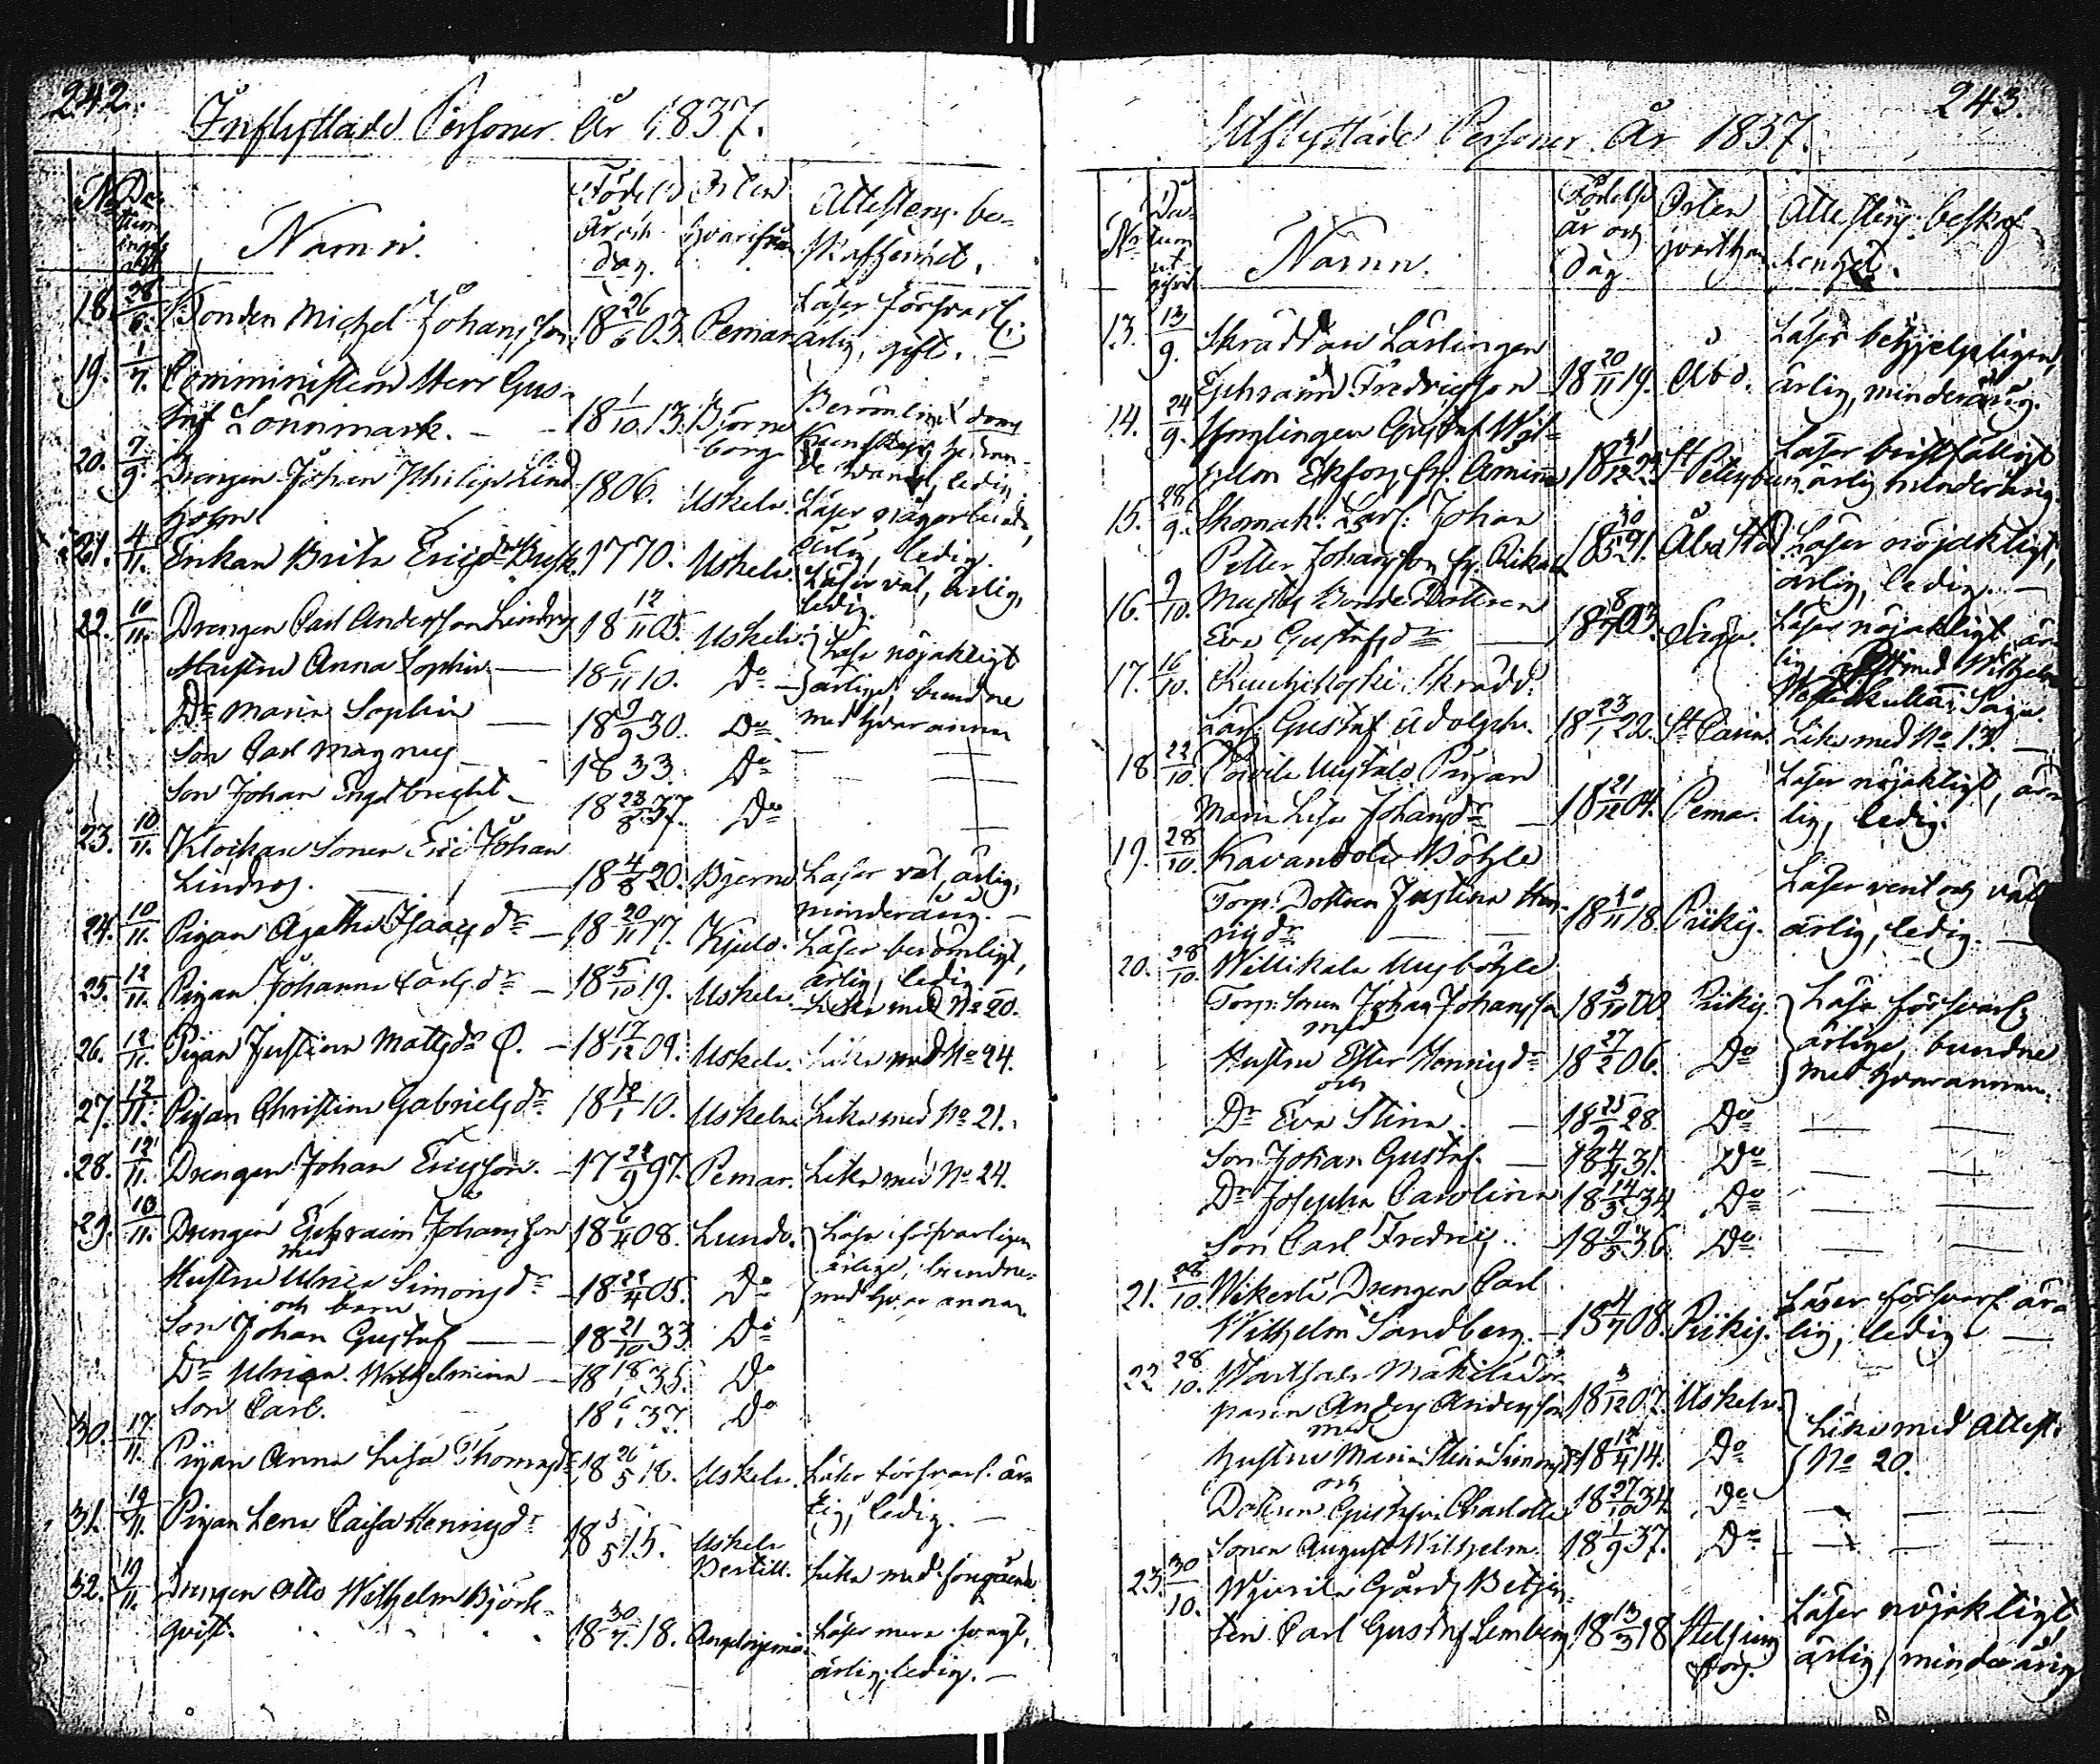 242.
Inflyttade Personer År 1837.
No
Da-
tum
Namn.
Födelse
År och
dag.
Orten
hvarifrån
Attestens be-
skaffenhet.
18. 28/6. Bonden Michel Johansson 18 26/6 03. Pemar Läser försvarl.
ärlig, gift.
19. 1/7. Comministern Herr Gus-
taf Lönnmark. 18 1/10 13. Björne-
borg Berömliga
kunskaper,
ledig.
20. 7/9. Drengen Johan Philip Lind-
holm 1806. Uskela. Läser
ärlig, ledig.
21. 4/11. Enkan Brita Ericsdr 1770. Uskela. Läser väl, ärlig,
ledig.
22. 10/11. Drengen Carl Andersson Lindroos 18 12/11 05. Uskela. Läsa nöjaktigt
Hustru Anna Sophia 18 6/11 10. Do ärliga, bundne
Dr Maria Sophia 18 9/9 30. Do med hvarannan
Son Carl Magnus 1833. Do
Son Johan Engelbrecht 18 23/8 37. Do
23. 10/11. Klockare Sonen Eric Johan
Lindros. 18 4/8 20. Bjerno Läser väl, ärlig,
minderårig.
24. 10/11. Pigan Agatha Isaacsdr 18 20/11 17. Kjulo. Läser berömligt,
ärlig, ledig.
25. 12/11. Pigan Johanna Carlsdr 18 5/10 19. Uskela. Lika med No 20.
26. 12/11. Pigan Justina Mattsdr 18 17/12 09. Uskela. Lika med No 24.
27. 12/11. Pigan Christina Gabrielsdr 18 12/1 10. Uskela. Lika med No 21.
28. 12/11. Drengen Johan Ericsson. 17 22/9 97. Pemar. Lika med No 24.
29. 13/11. Drengen Ephraim Johansson 18 6/4 08. Lundo. Läsa försvarligen
med
Hustru Ulrica Simonsdr 18 22/4 05. Do ärliga, bundne
med hvarannan
och barn
Son Johan Gustaf 18 21/10 33. Do
Dr Ulrica Wilhelmina 18 18/1 35. Do
Son Carl. 18 6/1 37. Do
30. 17/11. Pigan Anna Lisa Thomasdr 18 26/5 18. Uskela. Läser försvarl. är-
lig, ledig.
31. 19/11. Pigan Lena Caisa Henricsdr 18 3/5 15. Uskela
Bertill. Lika med föregående
32. 19/11. Drengen Otto Wilhelm Björk-
qvist. 18 30/7 18. Angelniemi. Läser svagt,
ärlig, ledig.
243.
Utflyttade Personer År 1837.
No
Da-
tum
Namn.
Födelse
år och
dag
Orten
hvarthän
Attestens beskaf-
fenhet.
13. 13/9. Skräddare Lärlingen
Ephraim Fredricsson 18 20/11 19. Åbo. Läser behjelpligen,
ärlig, minderårig.
14. 24/9. Ynglingen Gustaf Wil-
helm Ekfors fr. Åminne St Petersburg. Läser bristfälligt
ärlig minderårig.
15. 28/9. Skomak: Lärl: Johan
Petter Johansson fr. Åbo Stad Läser nöjaktigt,
ärlig, ledig.
16. 9/10. Bonde Dottren
Eva Gustafsdr Sagu. Läser nöjaktigt, är-
lig, med Wilhelm
Sagu.
17. 16/10. Skrädd:
Lärl: Gustaf Adolph. 18 23/1 22. St Carin. Lika med No 13.
18. 22/10. Nystals Pigan
Maria Lisa Johansdr 18 21/12 04. Pema. Läser nöjaktigt, är-
lig, ledig.
19. 28/10. Böhle
Torp: Dottren Justina Hen-
ricsdr 18 /11 18. Piikis. Läser rent och väl
ärlig, ledig.
20. 28/10. Willikala Nyböhle
Torp: Sonen Johan Johansson 18 3/10 00 Piikis. Läsa försvarl.
med
Hustru Ester Henricsdr 18 27/2 06. Do ärliga, bundne
med hvarannan.
och
Dr Eva Stina. 18 25/9 28. Do
Son Johan Gustaf. 18 4/4 31. Do
Dr Josepha Carolina 18 14/3 34. Do
Son Carl Fredric 18 9/5 36. Do
21. 28/10. Drengen Carl
Wilhelm Sandberg. 18 4/7 08. Piikis. Läser försvarl. är-
lig, ledig.
22. 28/10.
Anders Andersson 18 3/12 07. Uskela. Lika med Attest:
med
Hustru Maria Stina Simonsdr 18 12/4 14. Do No 20.
och
Dottren Gustafva Charlotta 18 27/10 34. Do
Sonen August Wilhelm. 18 1/9 37. Do
23. 30/10. Gårds Betjen-
ten Carl Gustaf Lemberg 18 13/3 18 Helsing-
fors. Läser nöjaktigt,
ärlig, minderårig